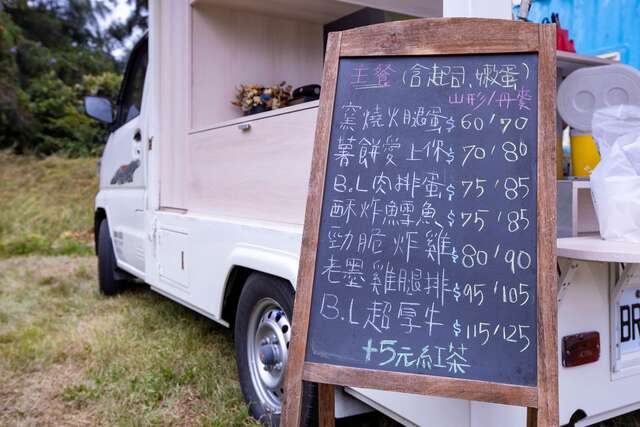 主餐(含起司、嫩蛋)
山形/丹麥
窯燒火腿蛋 $60/70
薯餅愛上你 $70/80
B.L肉排蛋 $75/85
酥炸鱈魚 $75/85
勁脆炸雞 $80/90
老墨雞腿排 $95/105
B.L超厚牛 $115/125
+5元紅茶
BR